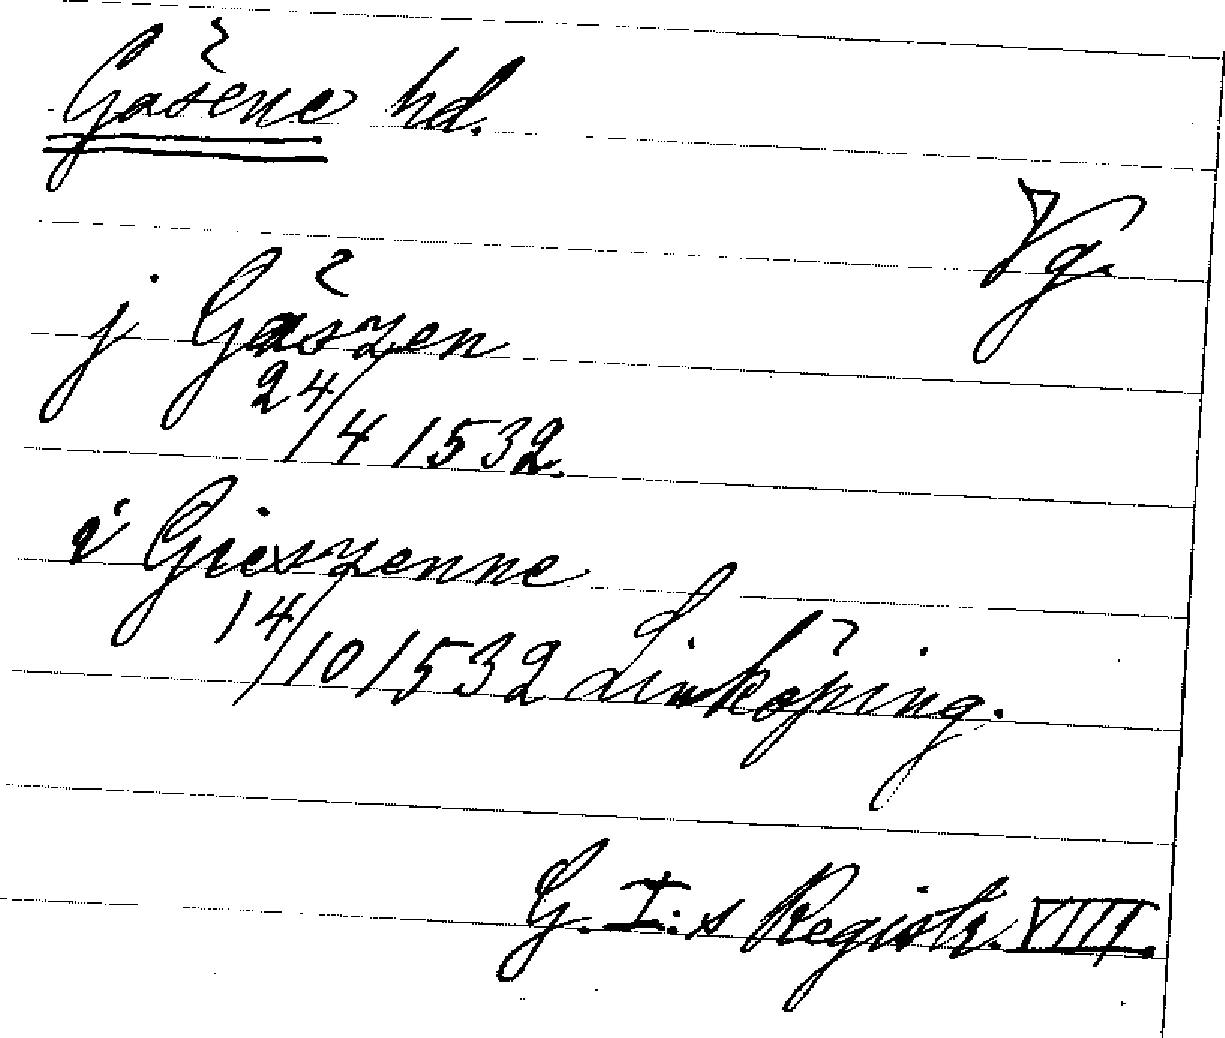 Gäsene hd.
Vg.
j Gäszen
24/4 1532.
i Gieszenne
14/10 1532 Linköping.
G. I:s Registr. VIII.